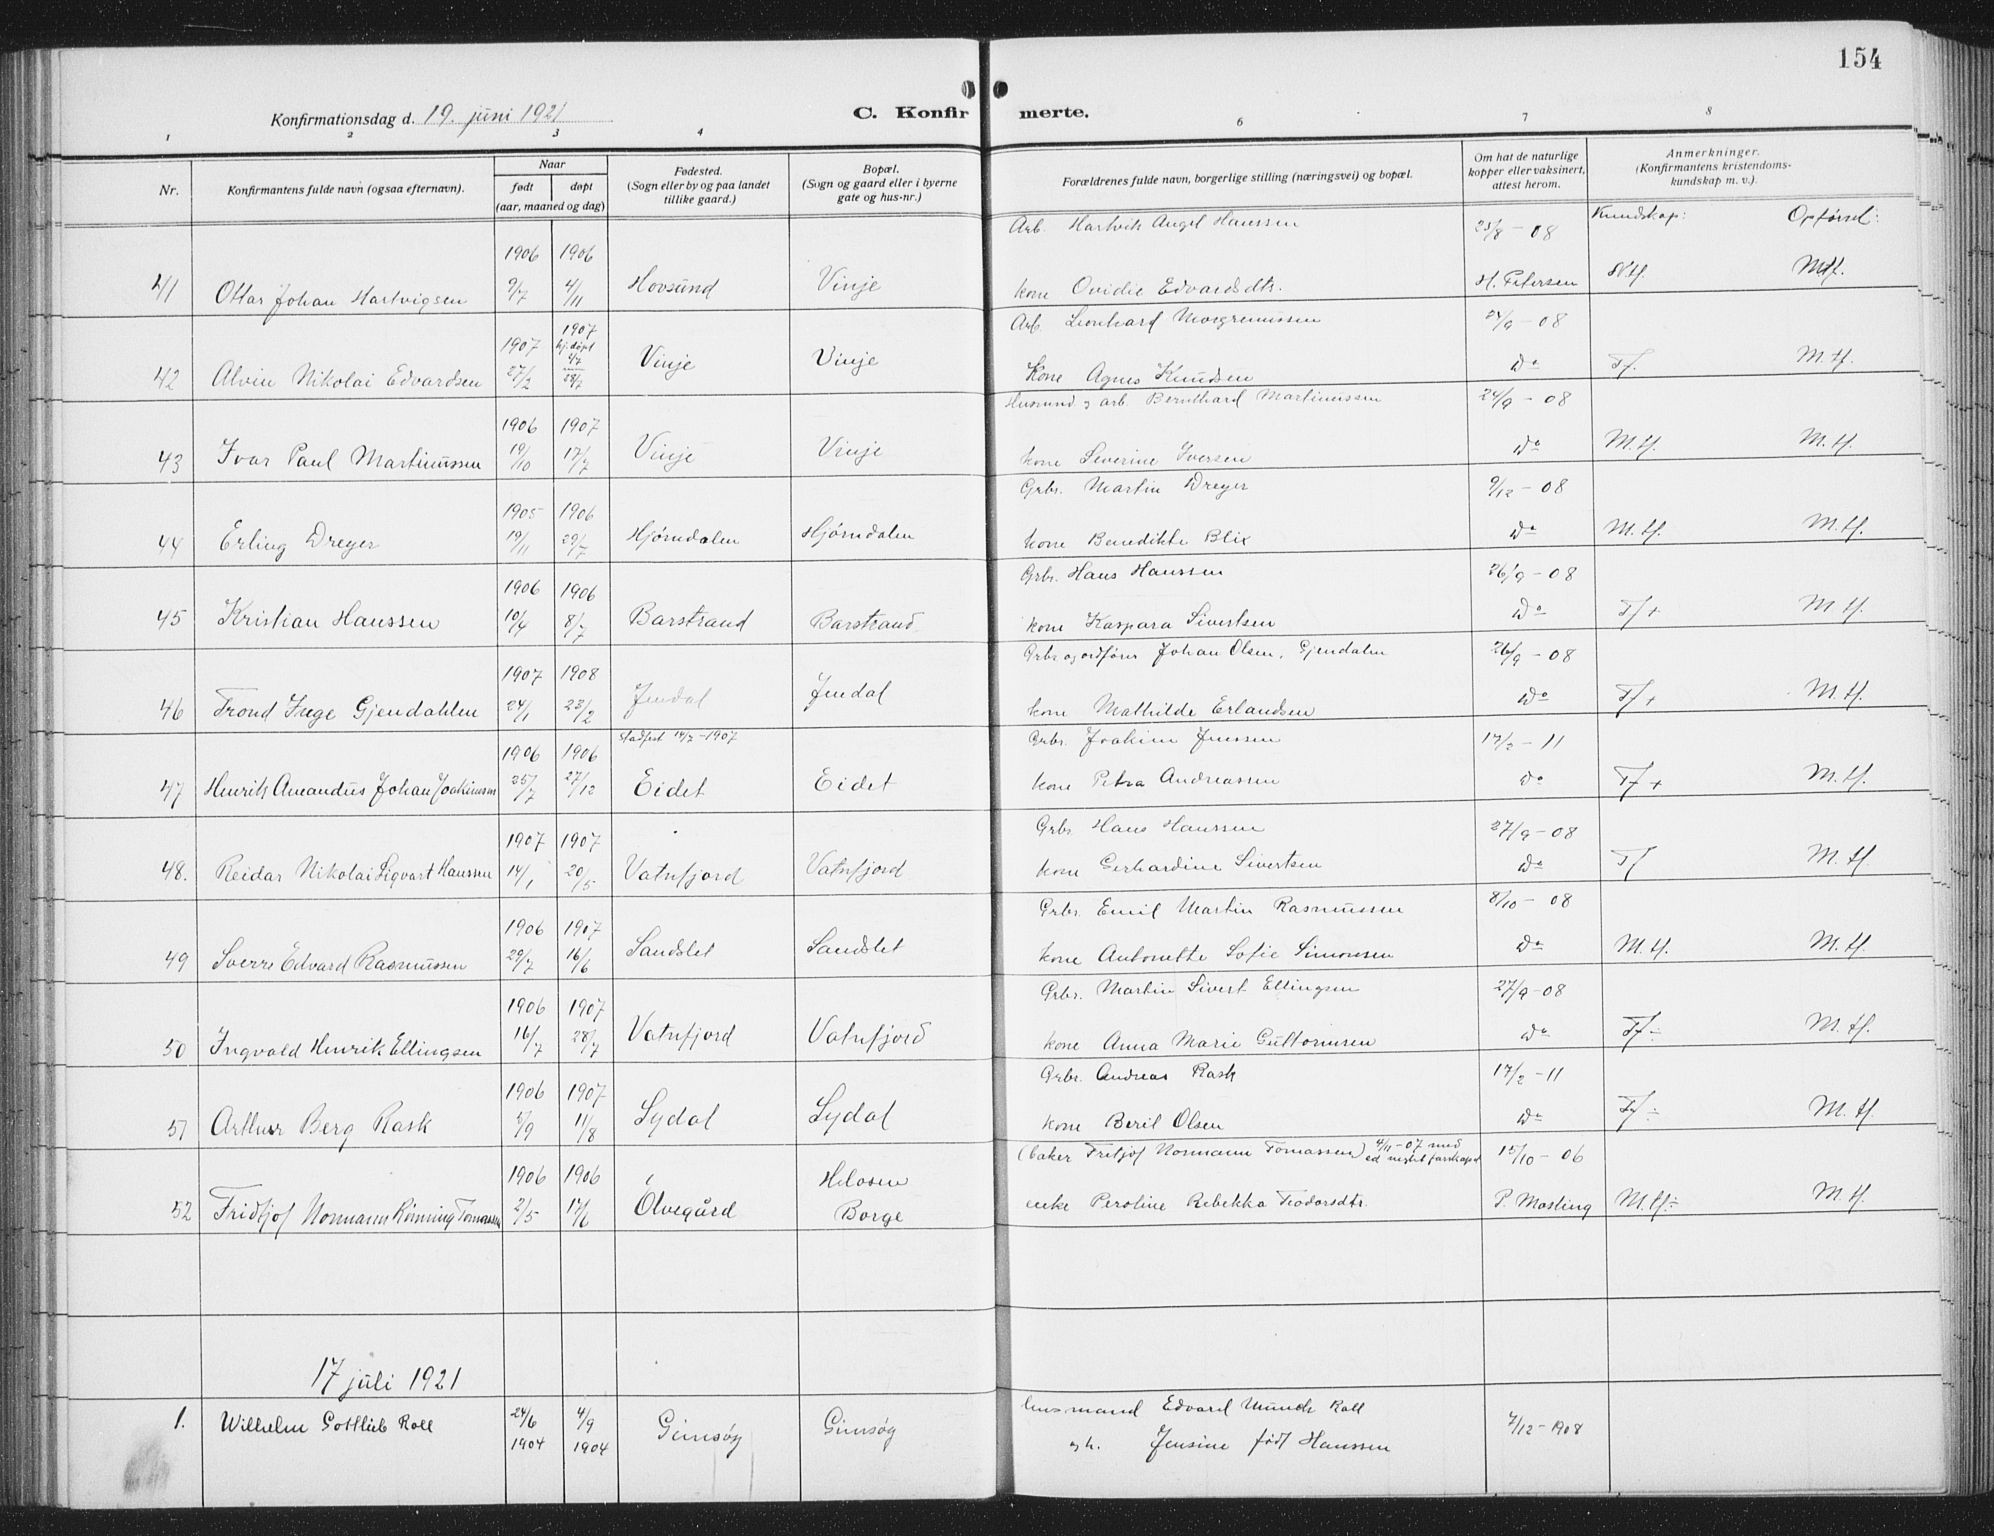 154
Konfirmationsdag d. 19. juni 1921
C. Konfirmerte.
1 2 3 4 6 7 8
Nr.
Konfirmantens fulde navn (ogsaa efternavn).
Naar
født døpt
(aar, maaned og dag)
Fødested.
(Sogn eller by og paa landet
tillike gaard.)
Bopæl.
(Sogn og gaard eller i byerne
gate og hus-nr.)
Forældrenes fulde navn, borgerlige stilling (næringsvei) og bopæl.
Om hat de naturlige
kopper eller vaksinert,
attest herom.
Anmerkninger.
(Konfirmantens kristendoms-
kundskap m. v.).
Kundskap: Opførsel:
Arb. Hartvik Angel Hanssen 25/8 - 08
1906 1906
41 Ottar Johan Hartvigsen 9/7 4/11 Hovsund Vinje kone Ovidie Edvardsdtr. H. Petersen M.tf.
Arb. Leonhard 24/9 - 08
1907 1907 hj.døpt 4/7
42 Alvin Nikolai Edvardsen 27/2 28/7 Vinje Vinje Kone Agnes Knudsen Do Tf. M.tf.
Husmand og arb. Bernthard Martinussen 24/9 - 08
1906 1907
43 Ivar Paul Martinussen 19/10 17/7 Vinje Vinje kone Severine Iversen Do M.tf. M.tf.
Grbr. Martin Dreyer 9/12 - 08
1905 1906
44 Erling Dreyer 19/11 29/7 Hjørndalen Hjørndalen kone Benedikte Blix Do M.tf. M.tf.
Grbr. Hans Hanssen 26/9 - 08
1906 1906
45 Kristian Hanssen 10/4 8/7 Barstrand Barstrand kone Kaspara Sivertsen Do Tf + M.tf.
Grbr. og ordfører Johan Olsen, Gjendalen 26/9 - 08
1907 1908
46 Trond Inge Gjendahlen 24/1 23/2 Jendal Jendal kone Mathilde Erlandsen Do Tf + M.tf.
stadfest 14/7 - 1907 Grbr. Joakim Jenssen 17/2 - 11
1906 1906
47 Henrik Amandus Johan Joakimsen 25/7 27/12 Eidet Eidet kone Petra Andreassen Do Tf + M.tf.
Grbr. Hans Hanssen 27/9 - 08
1907 1907
48. Reidar Nikolai Sigvart Hanssen 14/1 20/5 Vatnfjord Vatnfjord kone Gerhardine Sivertsen Do Tf M.tf.
Grbr. Emil Martin Rasmussen 8/10 - 08
1906 1907
49 Sverre Edvard Rasmussen 29/7 16/6 Sandslet Sandslet kone Antonette Sofie Simonsen Do M.tf. M.tf.
Grbr. Martin Sivert Ellingsen 27/9 - 08
1906 1907
50 Ingvald Henrik Ellingsen 16/7 28/7 Vatnfjord Vatnfjord kone Anna Marie Guttormsen Do Tf ÷ M.tf.
Grbr. Andreas Rask 17/2 - 11
1906 1907
51 Arthur Berg Rask 5/9 11/8 Lydal Lydal kone Beril Olsen Do Tf ÷ M.tf.
(baker Fritjof Normann Tomassen) 4/11 - 07 med ed negtet farskapet 15/10 - 06
1906 1906
52 Fridtjof Normann Rønning Tomassen 2/5 17/6 Ølvegård Helosen Borge enke Peroline Rebekka Teodorsdtr. P. Mosling M.tf. ÷ M.tf.
17 juli 1921
1. Wilhelm Gottlieb Roll 24/6 1904 4/9 1904 Gimsøy Gimsøy husmand Edvard Munch Roll 7/12 - 1908
og h. Jensine født Hanssen